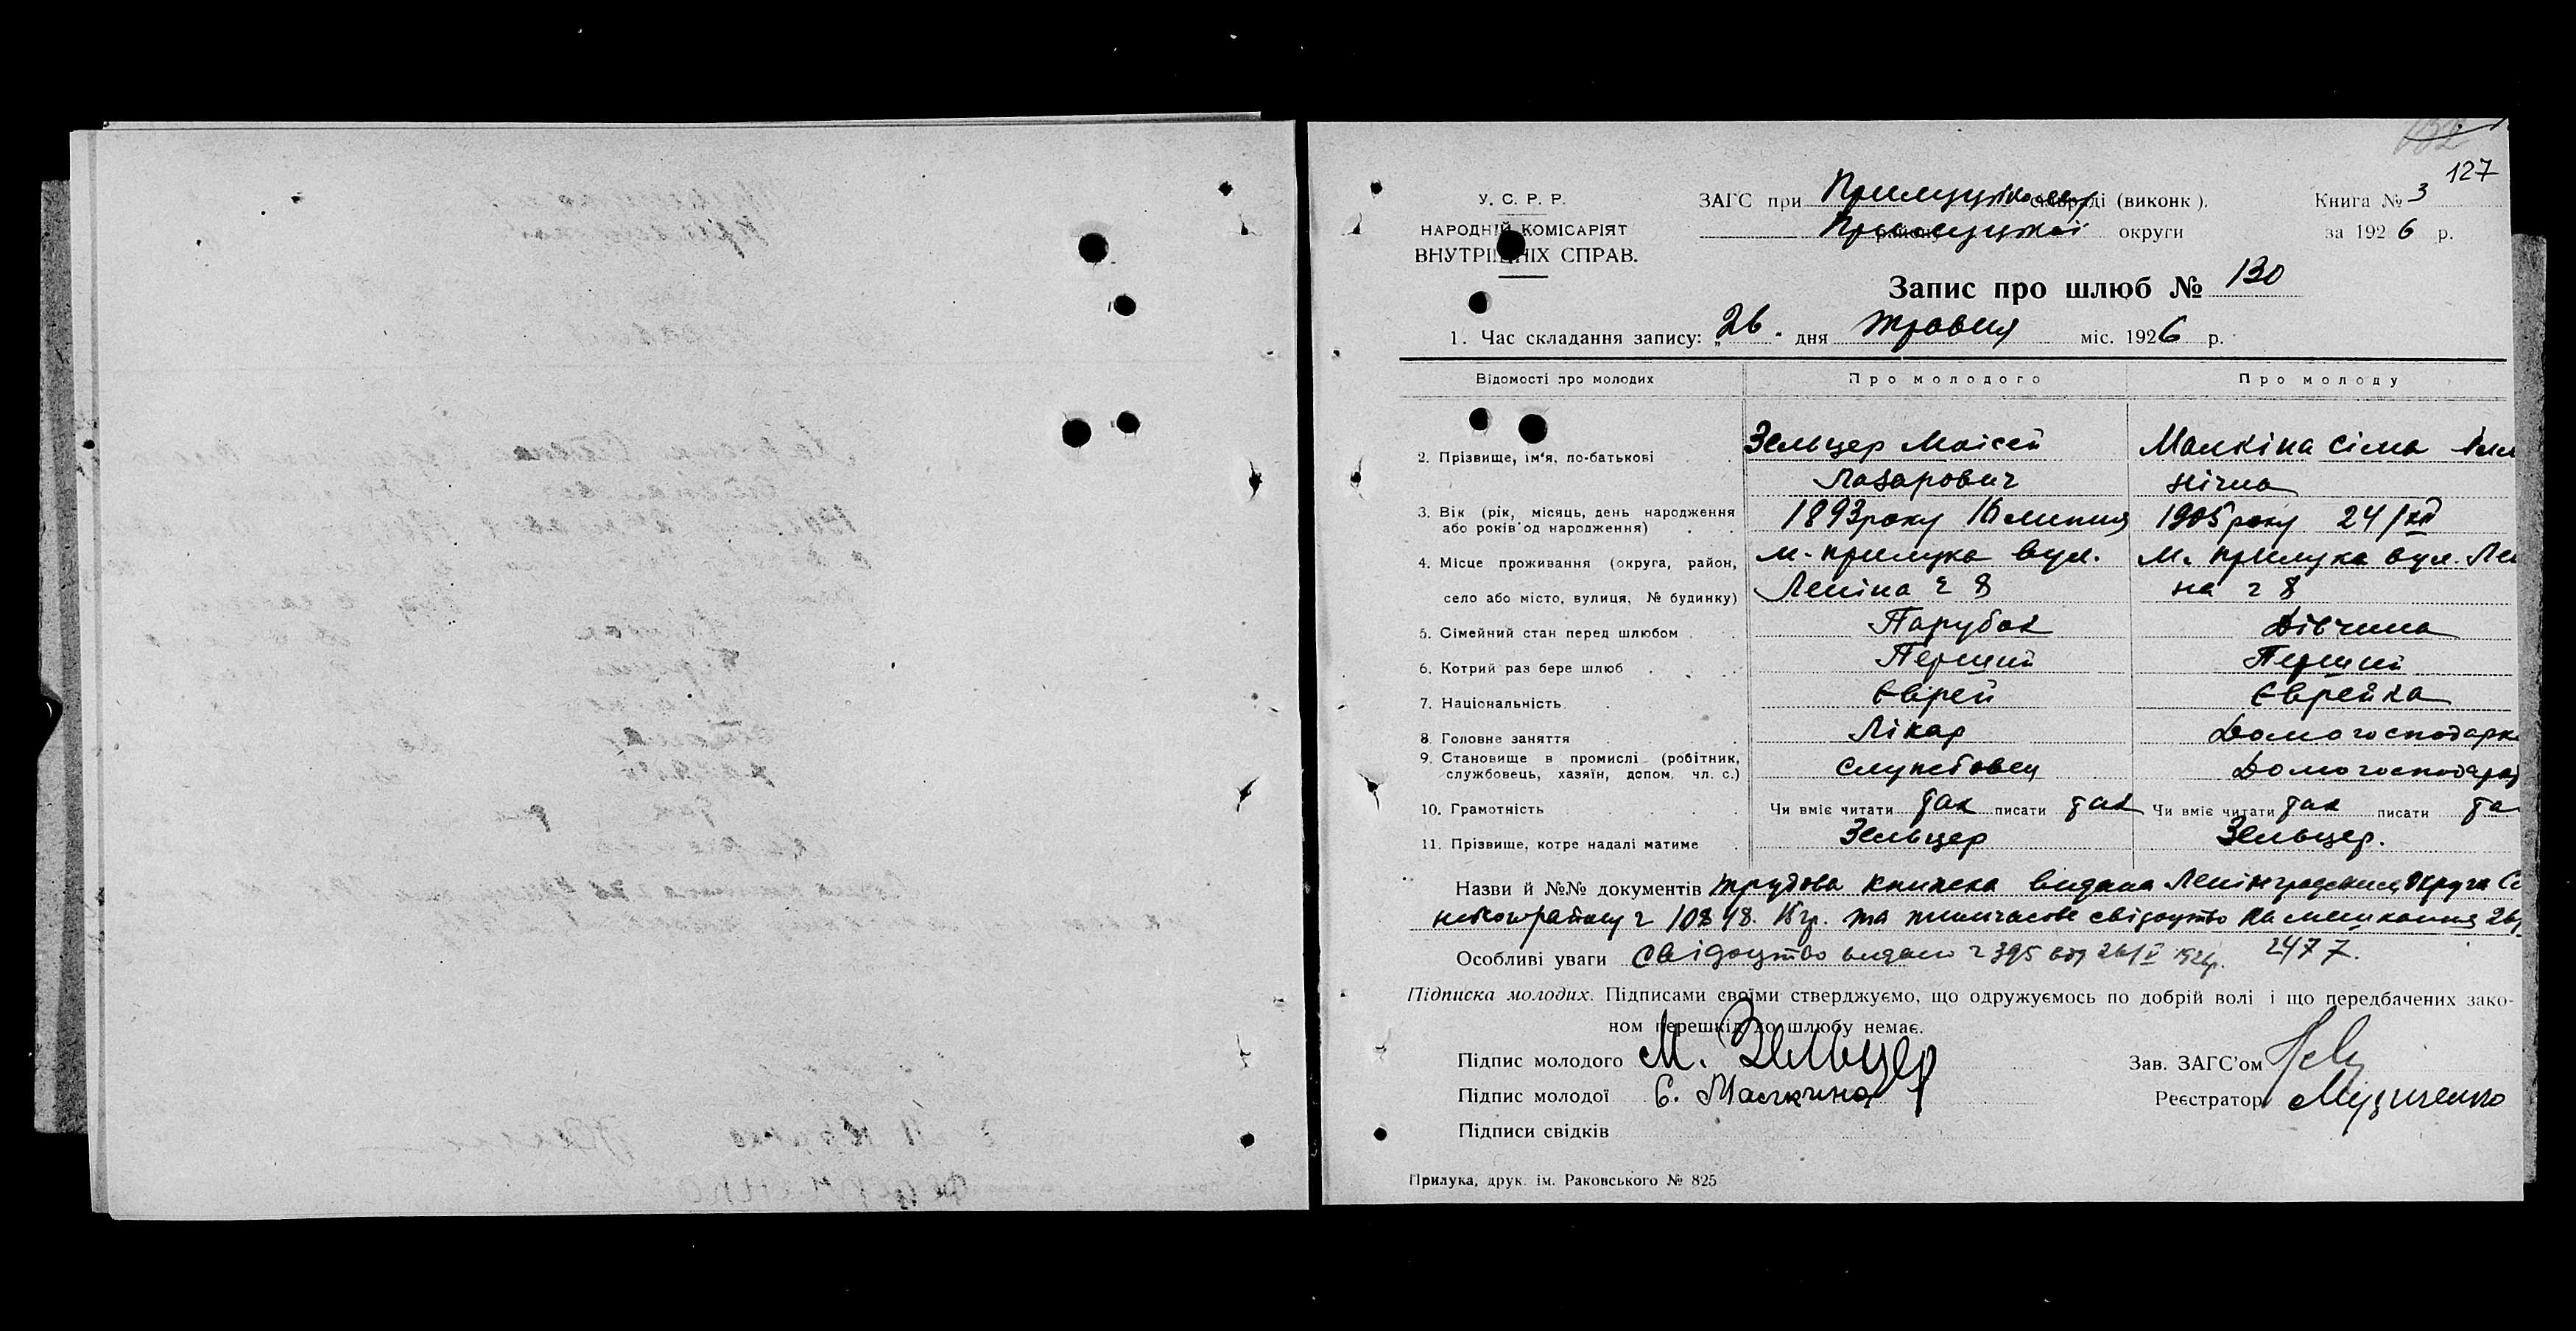 127
У. С. Р. Р.
НАРОДНІЙ КОМІСАРІЯТ
ВНУТРІШНІХ СПРАВ.
ЗАГС при Прилуцькому (виконк ).
Прилуцької округи
Книга № 3
за 1926 р.
Запис про шлюб № 130
1. Час складання запису: „26" дня травня міс. 1926 р.
Відомості про молодих Про молодого Про молоду
2. Прізвище, ім'я, по-батькові Зельцер Моісей Малкіна Сіма
Лазарович нічна
3. Вік (рік, місяць, день народження 1893 року 16 липня 1905 року 24/XII
або років од народження)
4. Місце проживання (округа, район, м. прилука вул. м. прилука вул. Ле
село або місто, вулиця, № будинку) Леніна ч 8 на ч 8
5. Сімейний стан перед шлюбом Парубок Дівчина
6. Котрий раз бере шлюб Перший Перший
7. Національність Єврей Єврейка
8. Головне заняття Лікар Домогосподарк
9. Становище в промислі (робітник, службовець, хазяїн, допом. чл. с.) Службовец Домогосподар
10. Грамотність Чи вміє читати так писати так Чи вміє читати так писати та
11. Прізвище, котре надалі матиме Зельцер Зельцер.
Назви й №№ документів трудова книжка видана округа
ч 10848. та тимчасове свідоцтво на мешкання
Особливі уваги Свідоцтво видано ч 395 від 26/V 1926р. 2477.
Підписка молодих. Підписами своїми стверджуємо, що одружуємось по добрій волі і що передбачених зако-
ном перешкід до шлюбу немає.
Підпис молодого М. Зельцер Зав. ЗАГС'ом
Підпис молодої С. Малкина Реєстратор
Підписи свідків
Прилука, друк. ім. Раковського № 825